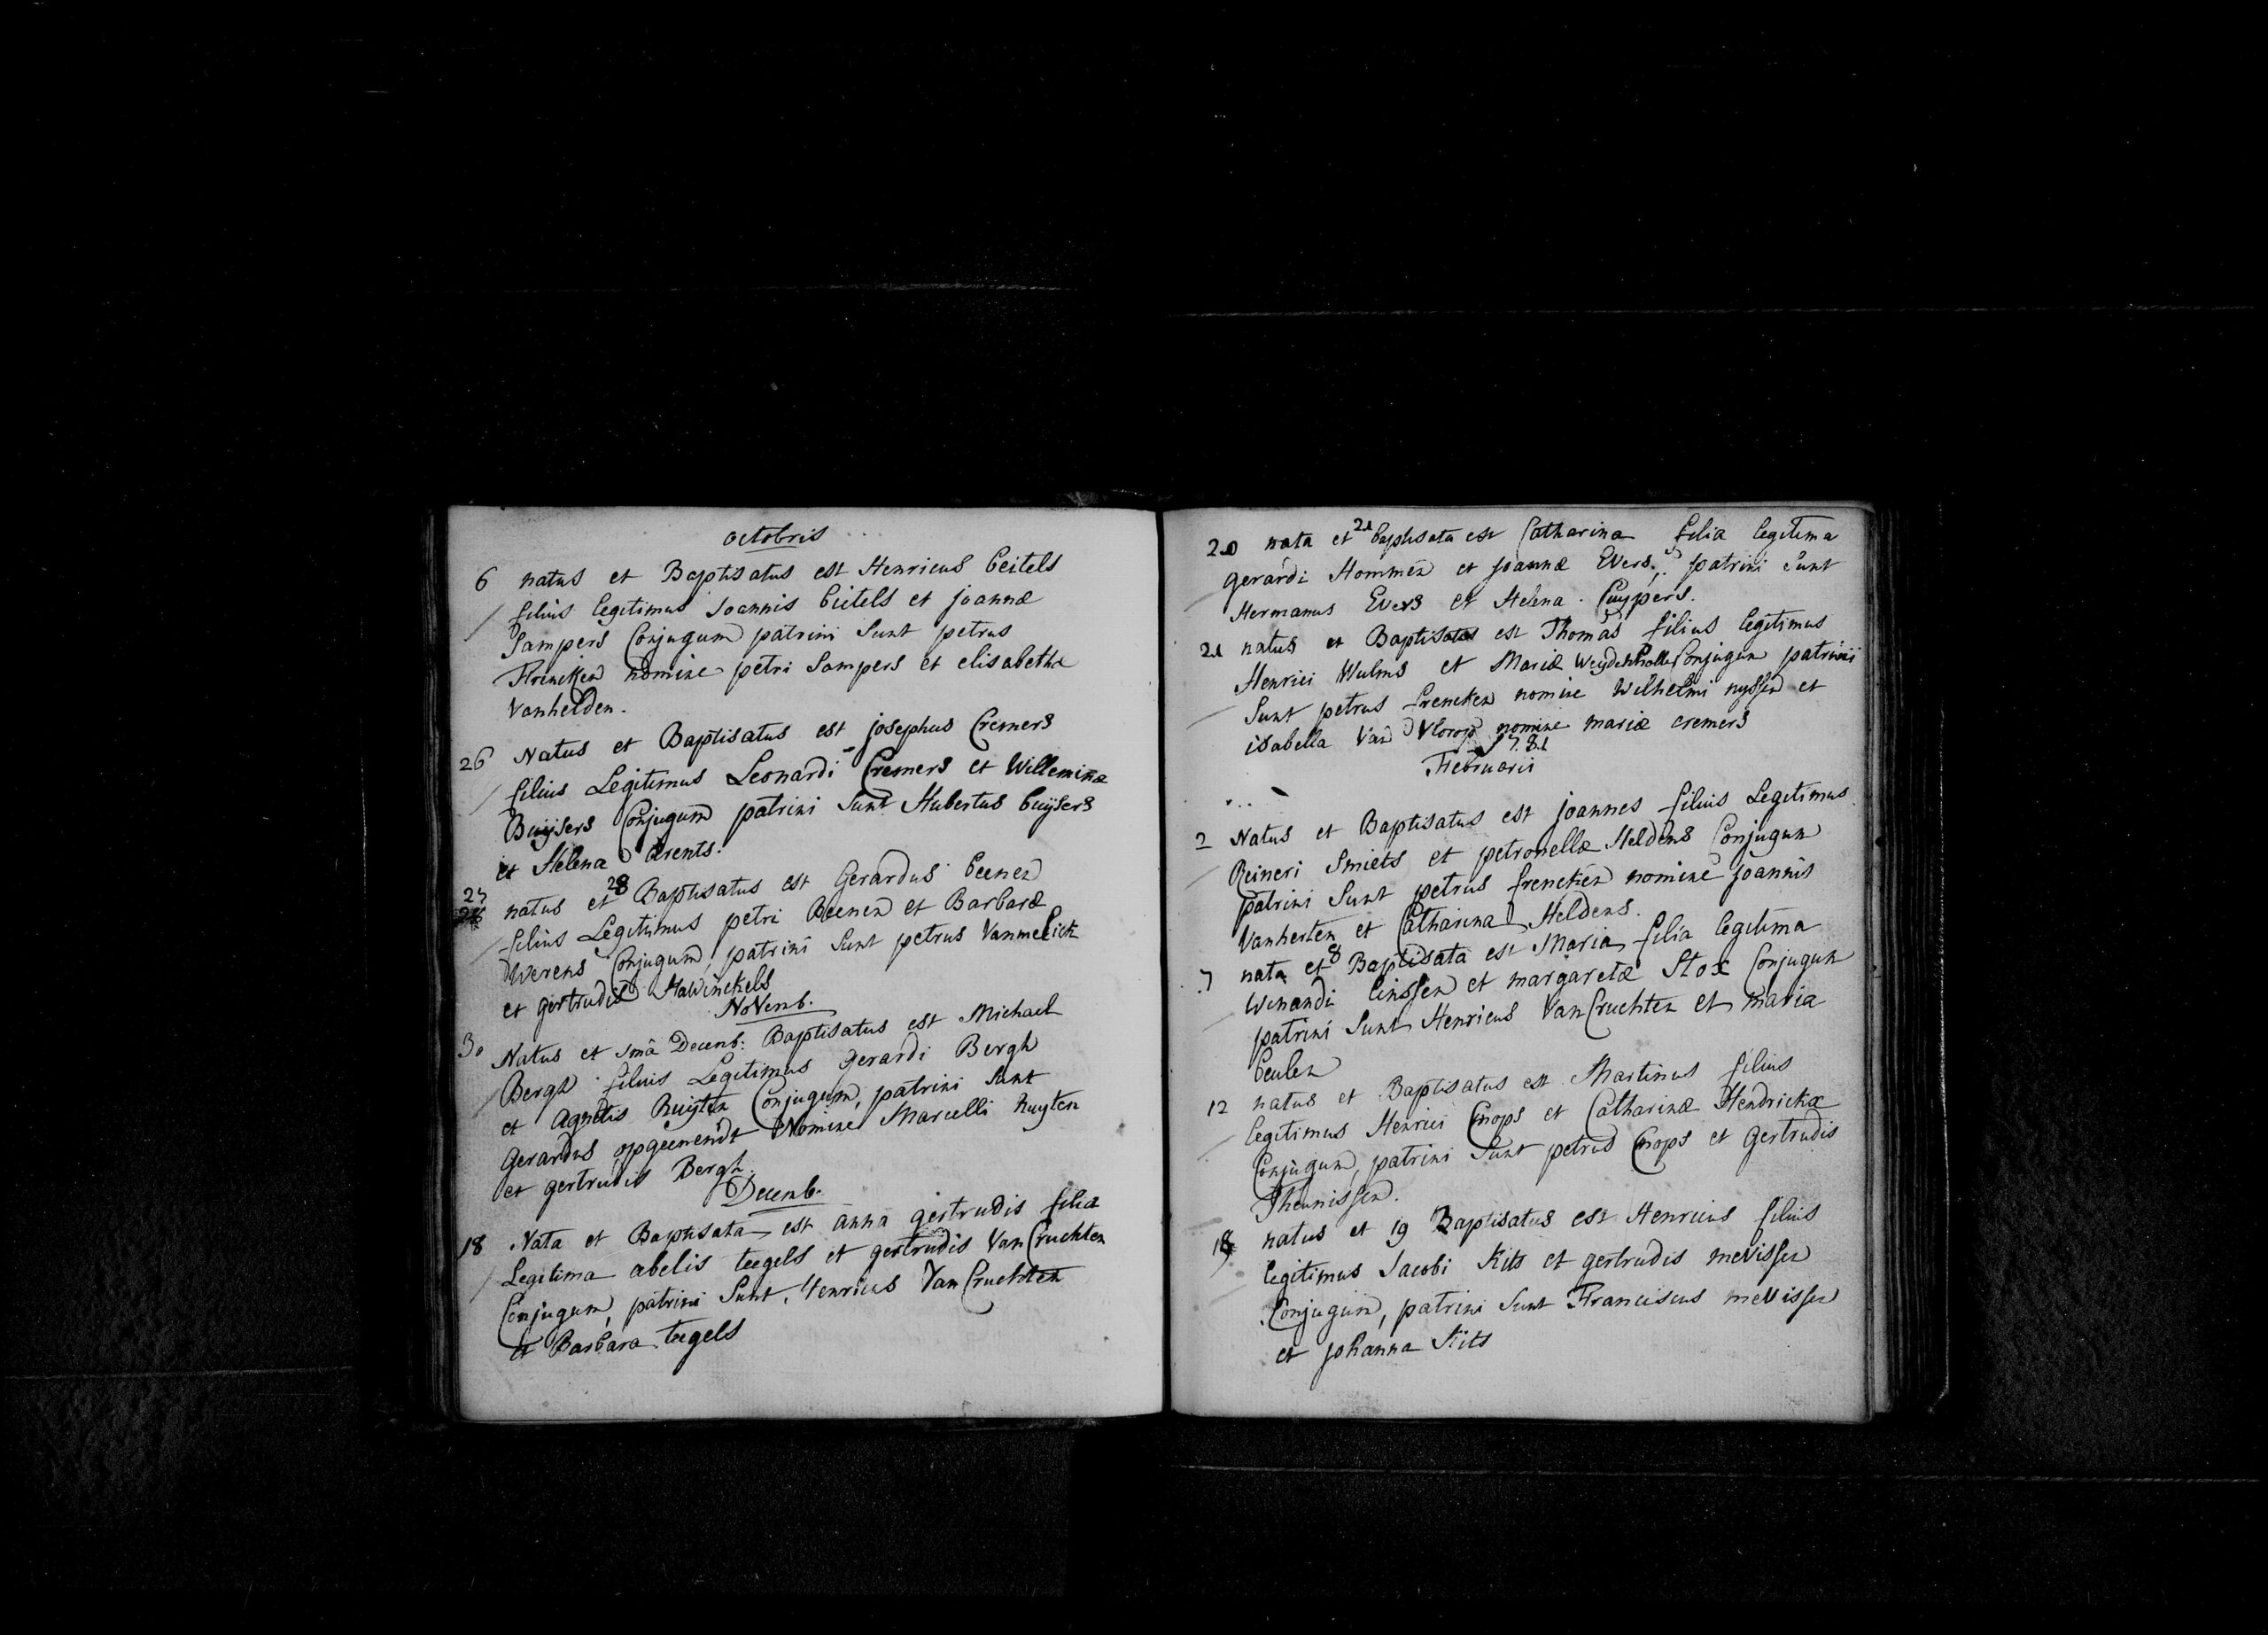 octobris
6 natus et Baptisatus est Henricus beitels
filius legitimus Joannis beitels et joannæ
Sampers Conjugum patrini sunt petrus
Frencken nomine petri Sampers et elisabetha
Vanhelden.
26 Natus et Baptisatus est josephus Cremers
filius Legitimus Leonardi Cremers et Willeminæ
Buijsers Conjugum patrini sunt Hubertus buijsers
et Helena Arents.
27 natus et 28 Baptisatus est Gerardus beenen
filius Legitimus petri Beenen et Barbaræ
Werens Conjugum, patrini sunt petrus Vanmelick
et gertrudis Hawinckels
Novemb.
30 Natus et 1mâ Decemb: Baptisatus est Michael
Bergh filius Legitimus gerardi Bergh
et Agnetis Ruijten Conjugum, patrini sunt
Gerardus opgeenendt Nomine Marcelli Ruyten
et gertrudis Bergh.
Decemb.
18 Nata et Baptisata est anna gertrudis filia
Legitima abelis teegels et gertrudis Van Cruchten
Conjugum, patrini sunt, Henricus Van Cruchten
et Barbara teegels
20 nata et 21 baptisata est Catharina filia legitima
gerardi Hommen et joannæ Evers, patrini sunt
Hermanus Evers et Helena Cuypers.
21 natus et Baptisatus est Thomas filius legitimus
Henrici Wulms et Mariæ Conjugum patrini
sunt petrus frencken nomine Wilhelmi nyssen et
isabella Van Vlorop nomine mariæ cremers
1781
Februarii
2 Natus et Baptisatus est joannes filius Legitimus
Reineri Smiets et petronellæ Heldens Conjugum
patrini sunt petrus frencken nomine joannis
Vanherten et Catharina Heldens.
7 nata et 8 Baptisata est Maria filia legitima
Winandi linssen et margaretæ Stox Conjugum
patrini sunt Henricus Van Cruchten et maria
beulen
12 natus et Baptisatus est Martinus filius
legitimus Henrici Cnops et Catharinæ Hendrickx
Conjugum, patrini sunt petrus Cnops et Gertrudis
Theunissen.
18 natus et 19 Baptisatus est Henricus filius
legitimus Jacobi Kits et gertrudis mevissen
Conjugum, patrini sunt Franciscus mevissen
et johanna Kits